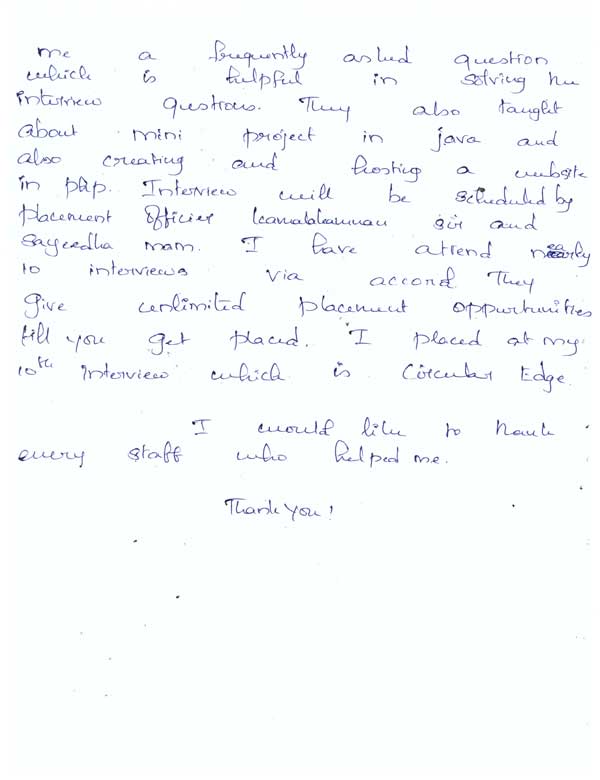 me a frequently asked question
which is helpful in solving the
interview questions. They also taught
about mini project in java and
also creating and hosting a website
in php. Interview will be scheduled by
placement officier sir and
Sayeedha mam. I have attend nearly
10 interviews via accord They
give unlimited placement oppurtunities
till you get placed. I placed at my
10th interview which is Circular Edge.
I would like to thank
every staff who helped me.
Thank you!